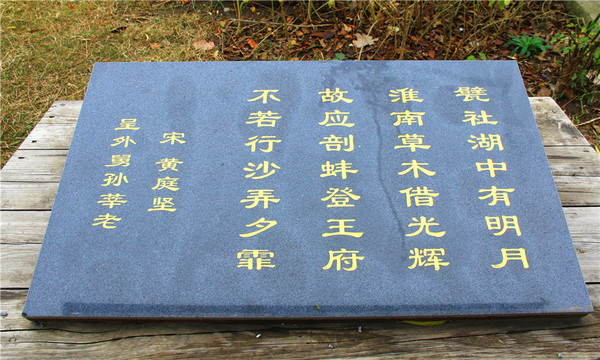 甓社湖中有明月
淮南草木借光辉
故应剖蚌登王府
不若行沙弄夕霏
宋 黄庭坚
呈外舅孙莘老